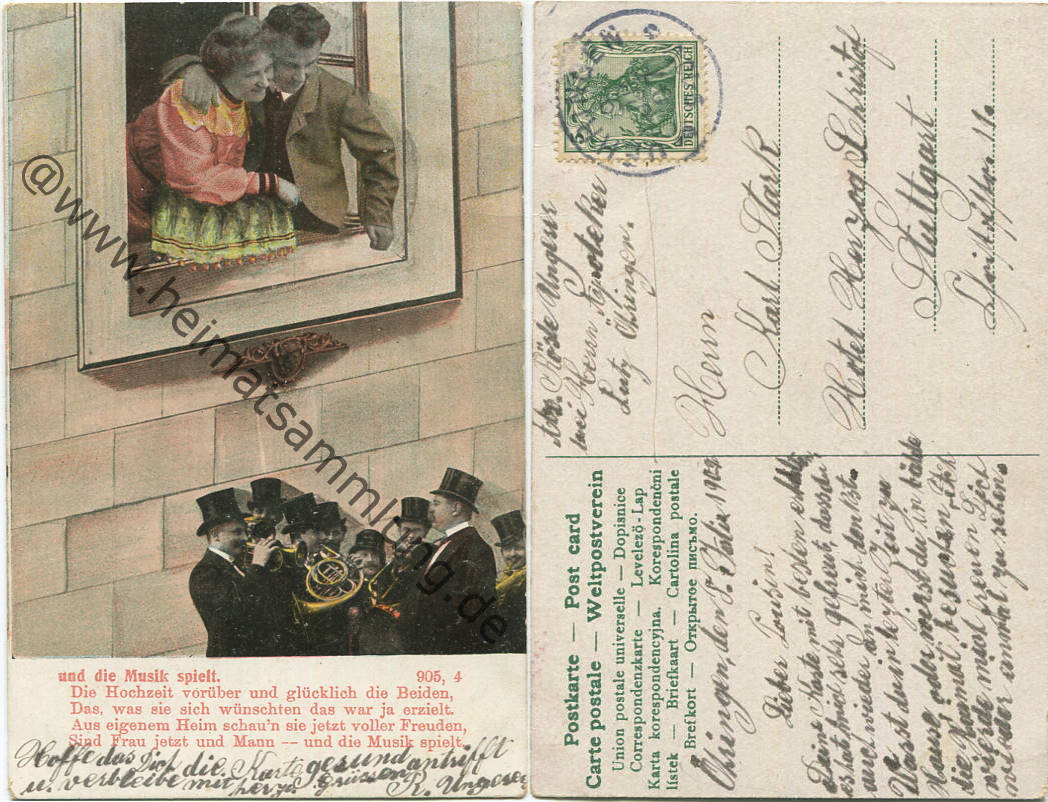 und die Musik spielt. 905, 4
Die Hochzeit vorüber und glücklich die Beiden,
Das, was sie sich wünschten das war ja erzielt.
Aus eigenem Heim schau'n sie jetzt voller Freuden,
Sind Frau jetzt und Mann — und die Musik spielt.
Hoffe das Dich die Karte gesund antrifft
u. verbleibe mit herzl. Grüssen R. Ungerer
@www.heimatsammlung.de
5 DEUTSCHES REICH
Abs. Röse Ungerer
bei Herrn Apotheker
Lutz Öhringen.
Herrn
Karl Stark
Hotel Herzog Christof
Stuttgart
Postkarte — Post card
Carte postale — Weltpostverein
Union postale universelle — Dopisnice
Correspondenzkarte — Levelező-Lap
Karta korespondencyjna. Korespondenční
lístek — Briefkaart — Cartolina postale
Brefkort — Открытое письмо.
Öhringen, den
Lieber Cousin!
Deine Karte mit bestem
es hat mich sehr gefreut, dass
auch wieder an mich denkst.
Warst du in letzter Zeit zu
Hause, oder wirst du in Bälde
die Heimat besuchen. Ich
würde mich freuen Dich
wieder einmal zu sehen.